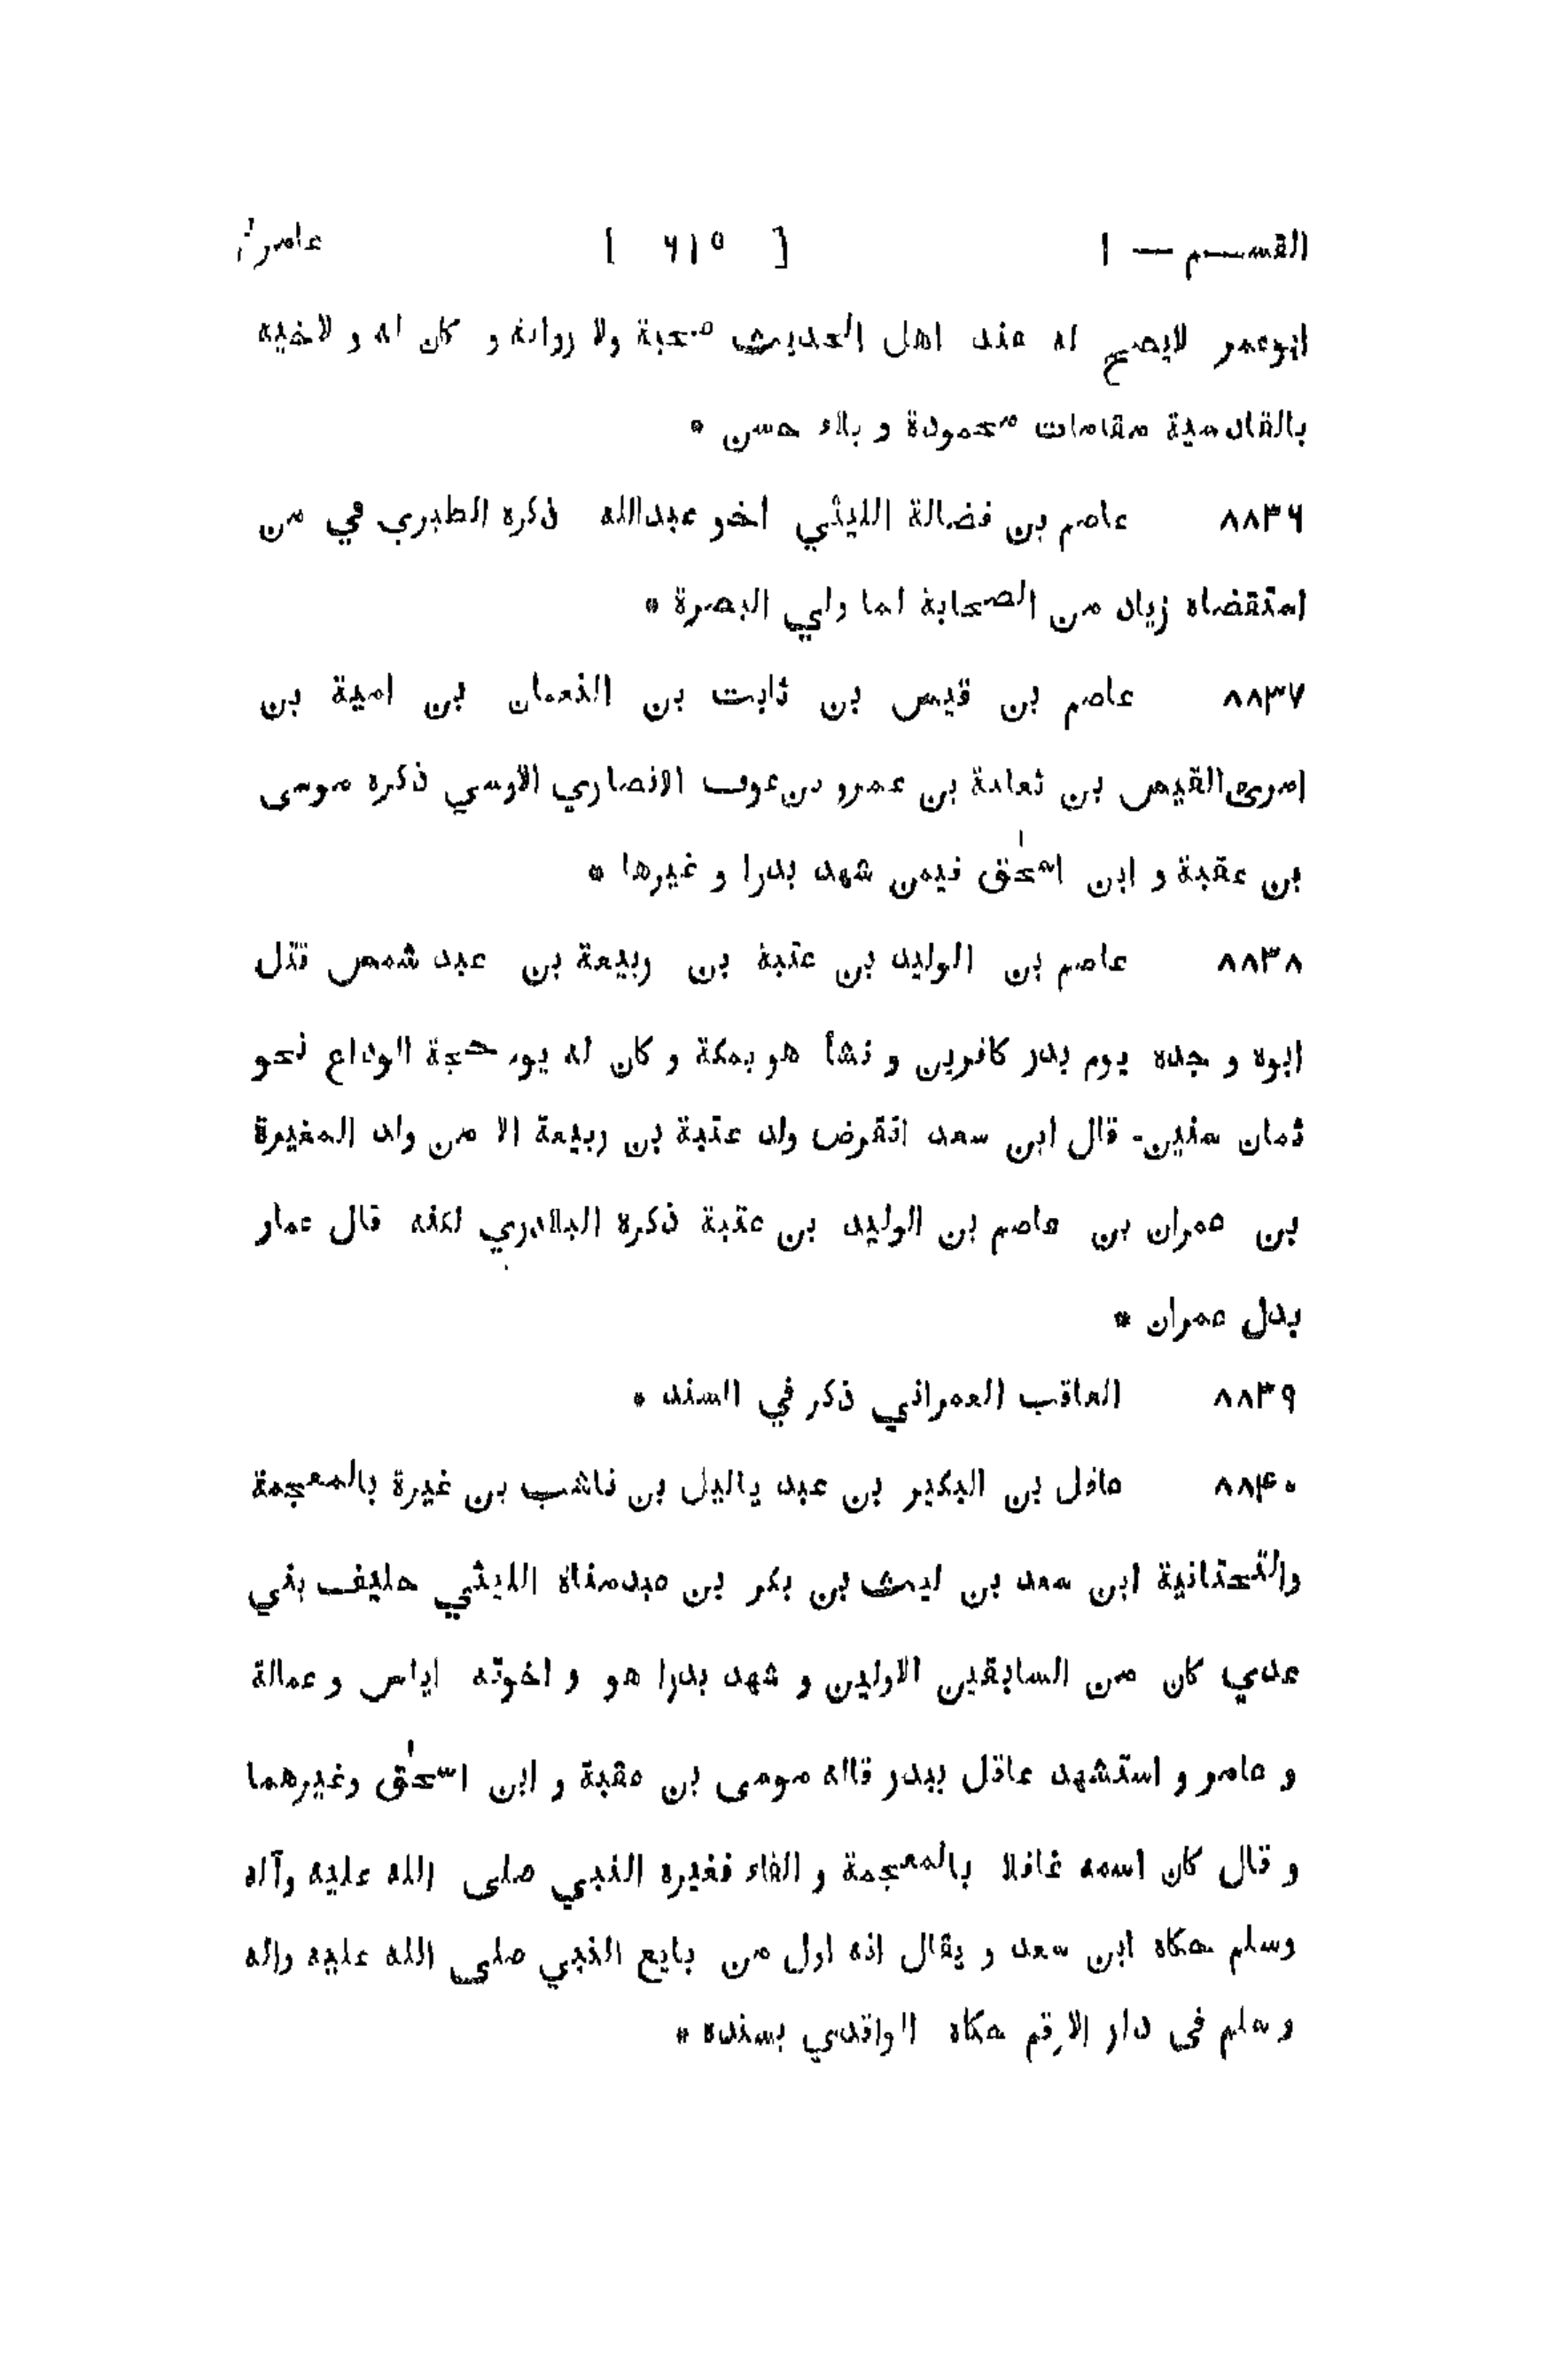 القسم — ١ [ ٦١٥ ] عاصم
ابوعمر لايصح له عند اهل الحديث صحبة ولا رواية و كان له و لاخيه
بالقادسية مقامات محمودة و بلاء حسن *
٨٨٣٦ عاصم بن فضالة الليثي اخو عبدالله ذكره الطبري في من
استقضاه زياد من الصحابة لما ولي البصرة *
٨٨٣٧ عاصم بن قيس بن ثابت بن النعمان بن امية بن
امرئ القيس بن ثعلبة بن عمرو بن عوف الانصاري الاوسي ذكره موسى
بن عقبة و ابن اسحٰق فيمن شهد بدرا و غيرها *
٨٨٣٨ عاصم بن الوليد بن عتبة بن ربيعة بن عبد شمس قتل
ابوه و جده يوم بدر كافرين و نشأ هو بمكة و كان له يوم حجة الوداع نحو
ثمان سنين - قال ابن سعد انقرض ولد عتبة بن ربيعة الا من ولد المغيرة
بن عمران بن عاصم بن الوليد بن عتبة ذكره البلاذري لكنه قال عمار
بدل عمران *
٨٨٣٩ العاقب العمراني ذكر في السند *
٨٨۴٠ عاقل بن البكير بن عبد ياليل بن ناشب بن غيرة بالمعجمة
والتحتانية ابن سعد بن ليث بن بكر بن عبدمناة الليثي حليف بني
عدي كان من السابقين الاولين و شهد بدرا هو و اخوته اياس و عمالة
و عامر و استشهد عاقل ببدر قاله موسى بن عقبة و ابن اسحٰق وغيرهما
و قال كان اسمه غافلا بالمعجمة و الفاء فغيره النبي صلى الله عليه وآله
وسلم حكاه ابن سعد و يقال انه اول من بايع النبي صلى الله عليه واله
وسلم في دار الارقم حكاه الواقدي بسنده *